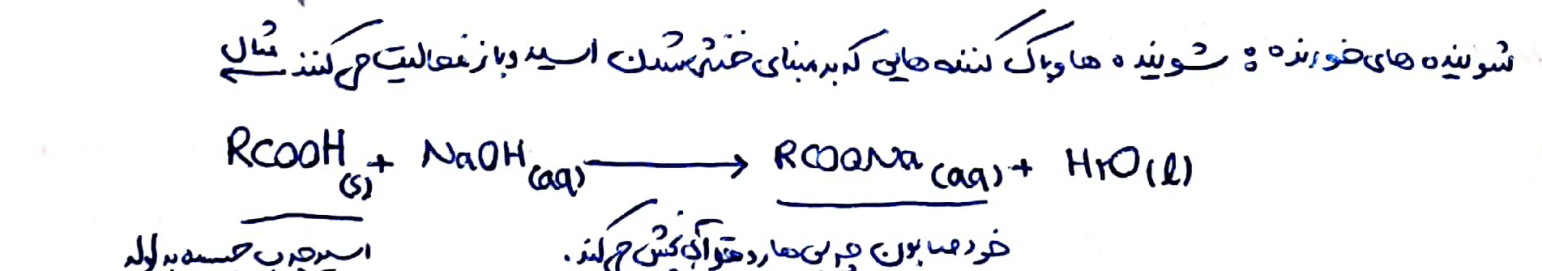 شوینده های خورنده : شوینده ها و پاک کننده هایی که بر مبنای خنثی شدن اسید و باز فعالیت می کنند مثال
RCOOH(s) + NaOH(aq) → RCOONa(aq) + H۲O(l)
اسید چرب چسبیده به لوله
خود صابون چربی ها رو تو آب پخش می کند.